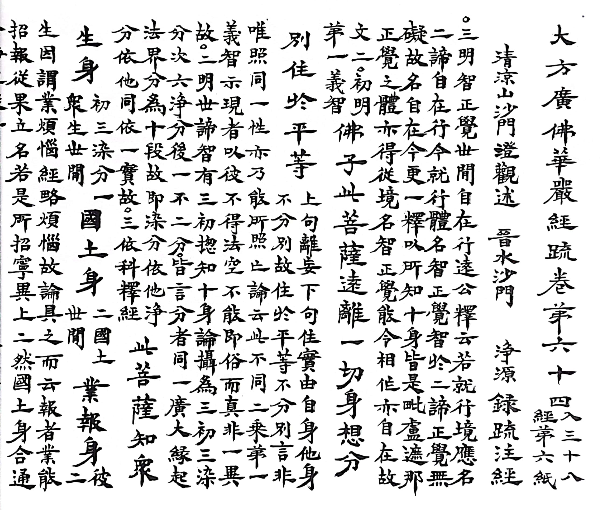 大方廣佛華嚴經疏卷第六十四入三十八經第六紙
清涼山沙門澄觀述　晉水沙門　淨源錄疏注經
○三明智正覺世間自在行遠公釋云若就行境應名
二諦自在行今就行體名智正覺智於二諦正覺無
礙故名自在今更一釋以所知十身皆是毗盧遮那
正覺之體亦得從境名智正覺能令相作亦自在故
文二○初明第一義智 佛子此菩薩遠離一切身想分
別住於平等 上句離妄下句住實由自身他身不分別故住於平等不分別言非
唯照同一性亦乃能所照亡論云此不同二乘第一
義智示現者以彼不得法空不能即俗而真非一異
故○二明世諦智有三初揔知十身論攝為三初三染
分次六淨分後一不二分皆言分者同一廣大緣起
法界分為十段故即染分依他淨
分依他同依一實故○三依科釋經 此菩薩知衆
生身 初三染分一衆生世間 國土身 二國土世間 業報身 二彼
生因謂業煩惱經略煩惱故論具之而云報者業能
招報從果立名若是所招寧異上二然國土身合通